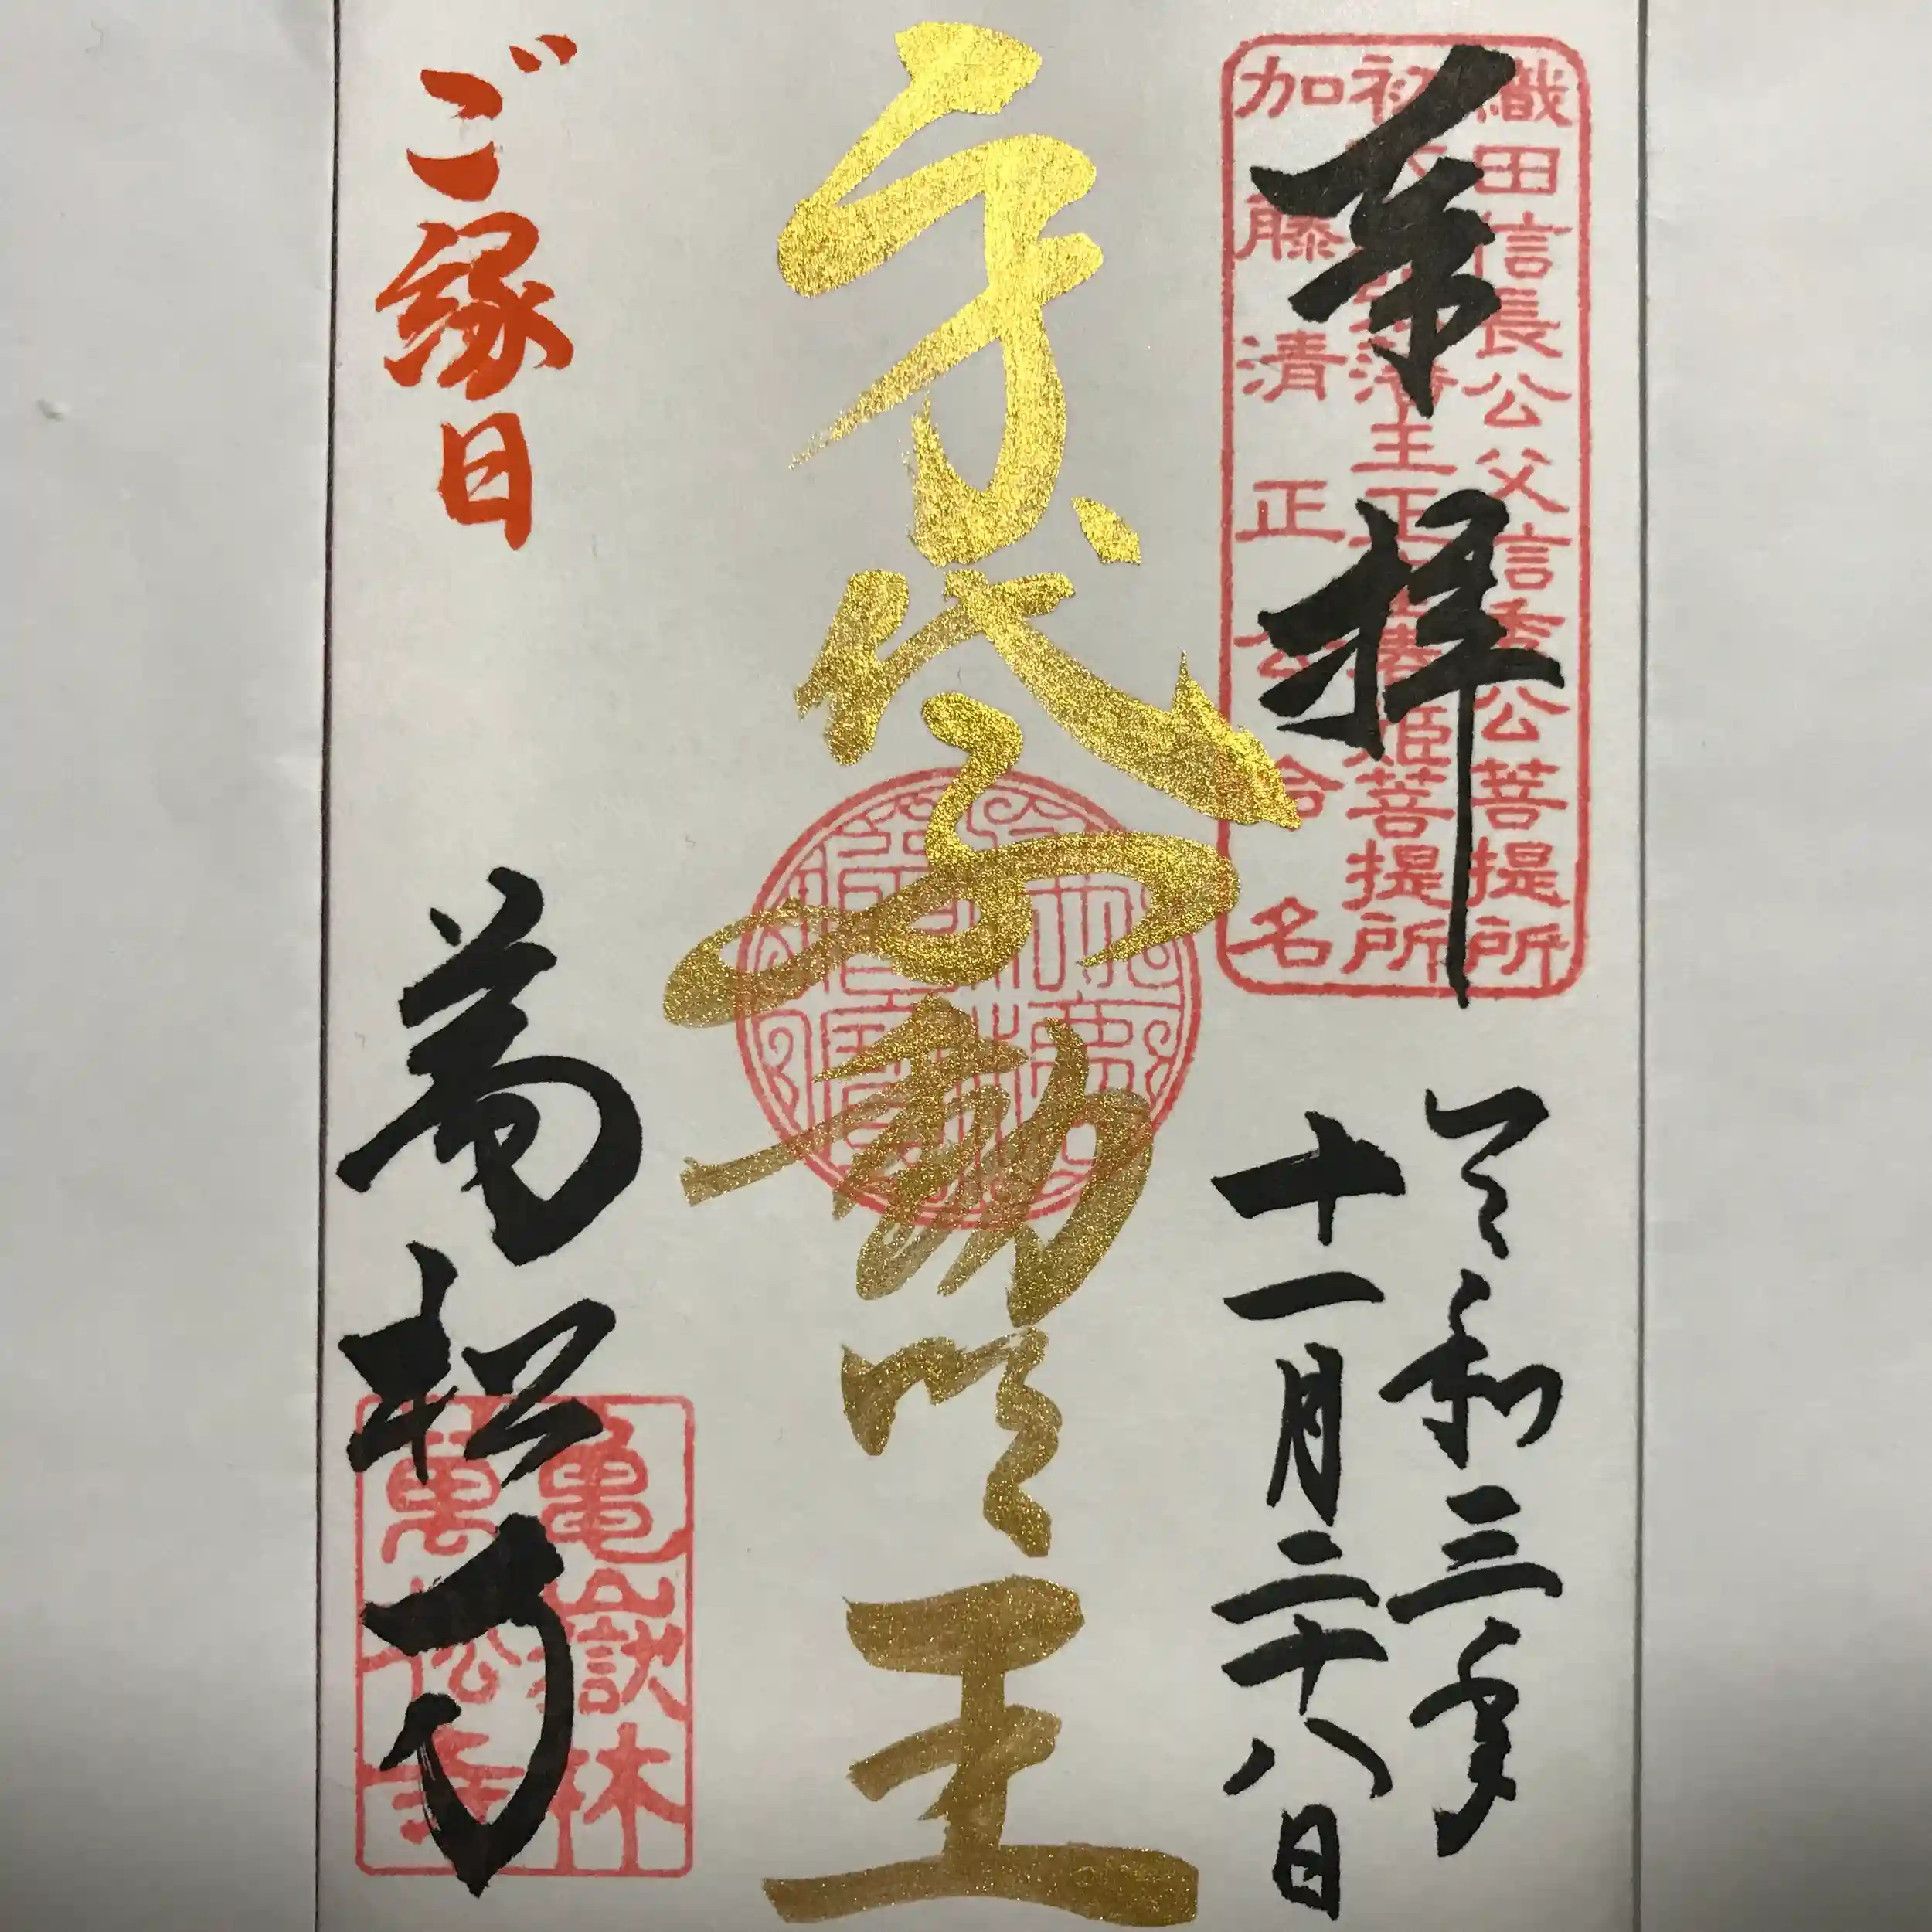 奉拝
令和三年
十一月二十八日
織田信長公父信秀公菩提所
菩提所
加藤清正公命名
身代不動明王
ご縁日
萬松寺
亀岳林
萬松寺